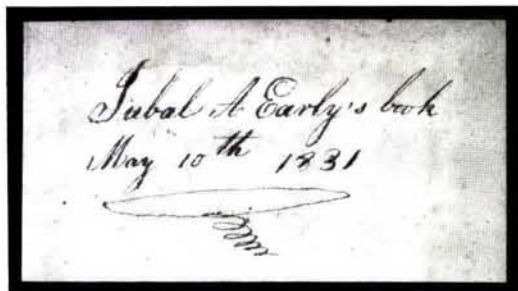 Jubal A Early's book
May 10th 1831